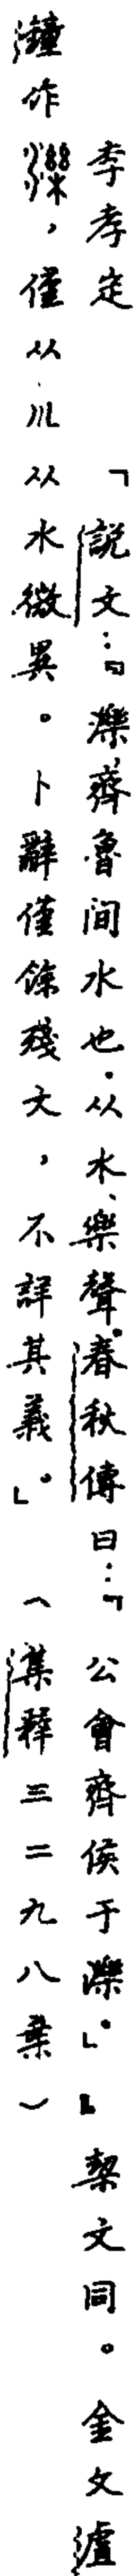 李孝定　「說文：『濼，齊魯間水也。从水、樂聲。春秋傳曰：「公會齊侯于濼。」』契文同。金文瀘
鐘作，僅从川从水微異。卜辭僅餘殘文，不詳其義。」　（集釋三二九八葉）